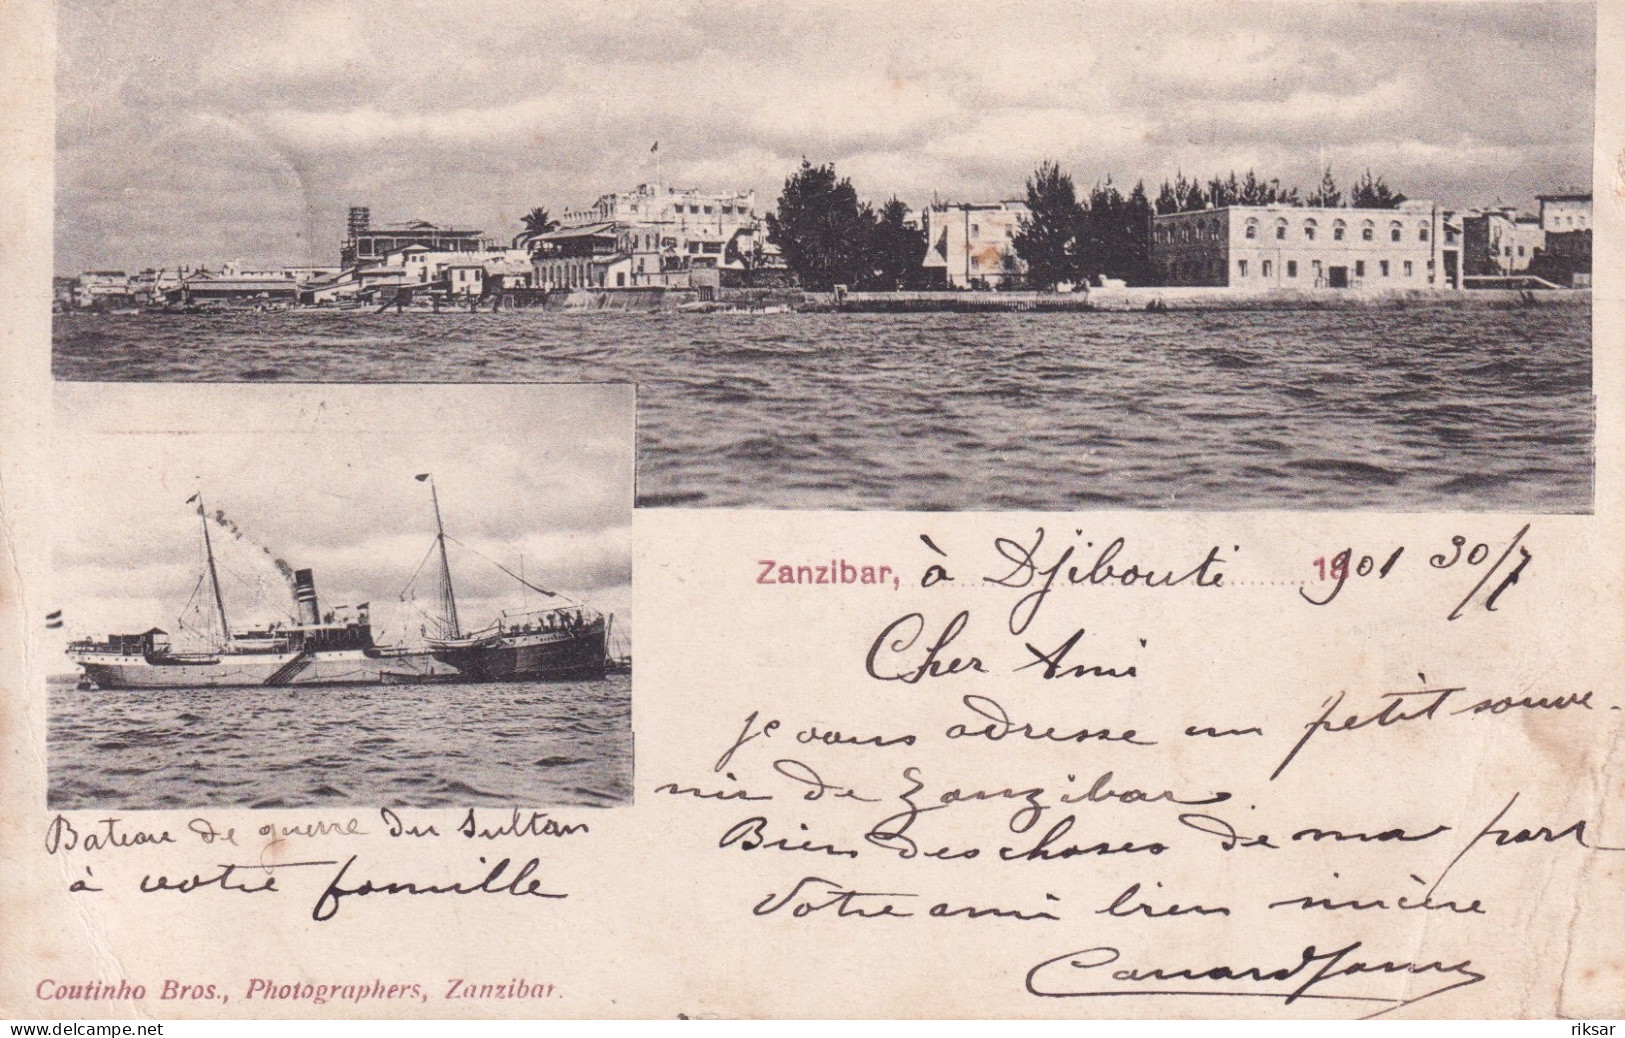 Zanzibar, à Djibouti 1901 30/7
Cher Ami
je vous adresse un petit souve-
nir de Zanzibar.
Bien des choses de ma part
Bateau de guerre du Sultan
à votre famille
Votre ami bien sincère
Coutinho Bros., Photographers, Zanzibar.
riksar
delcampe.net